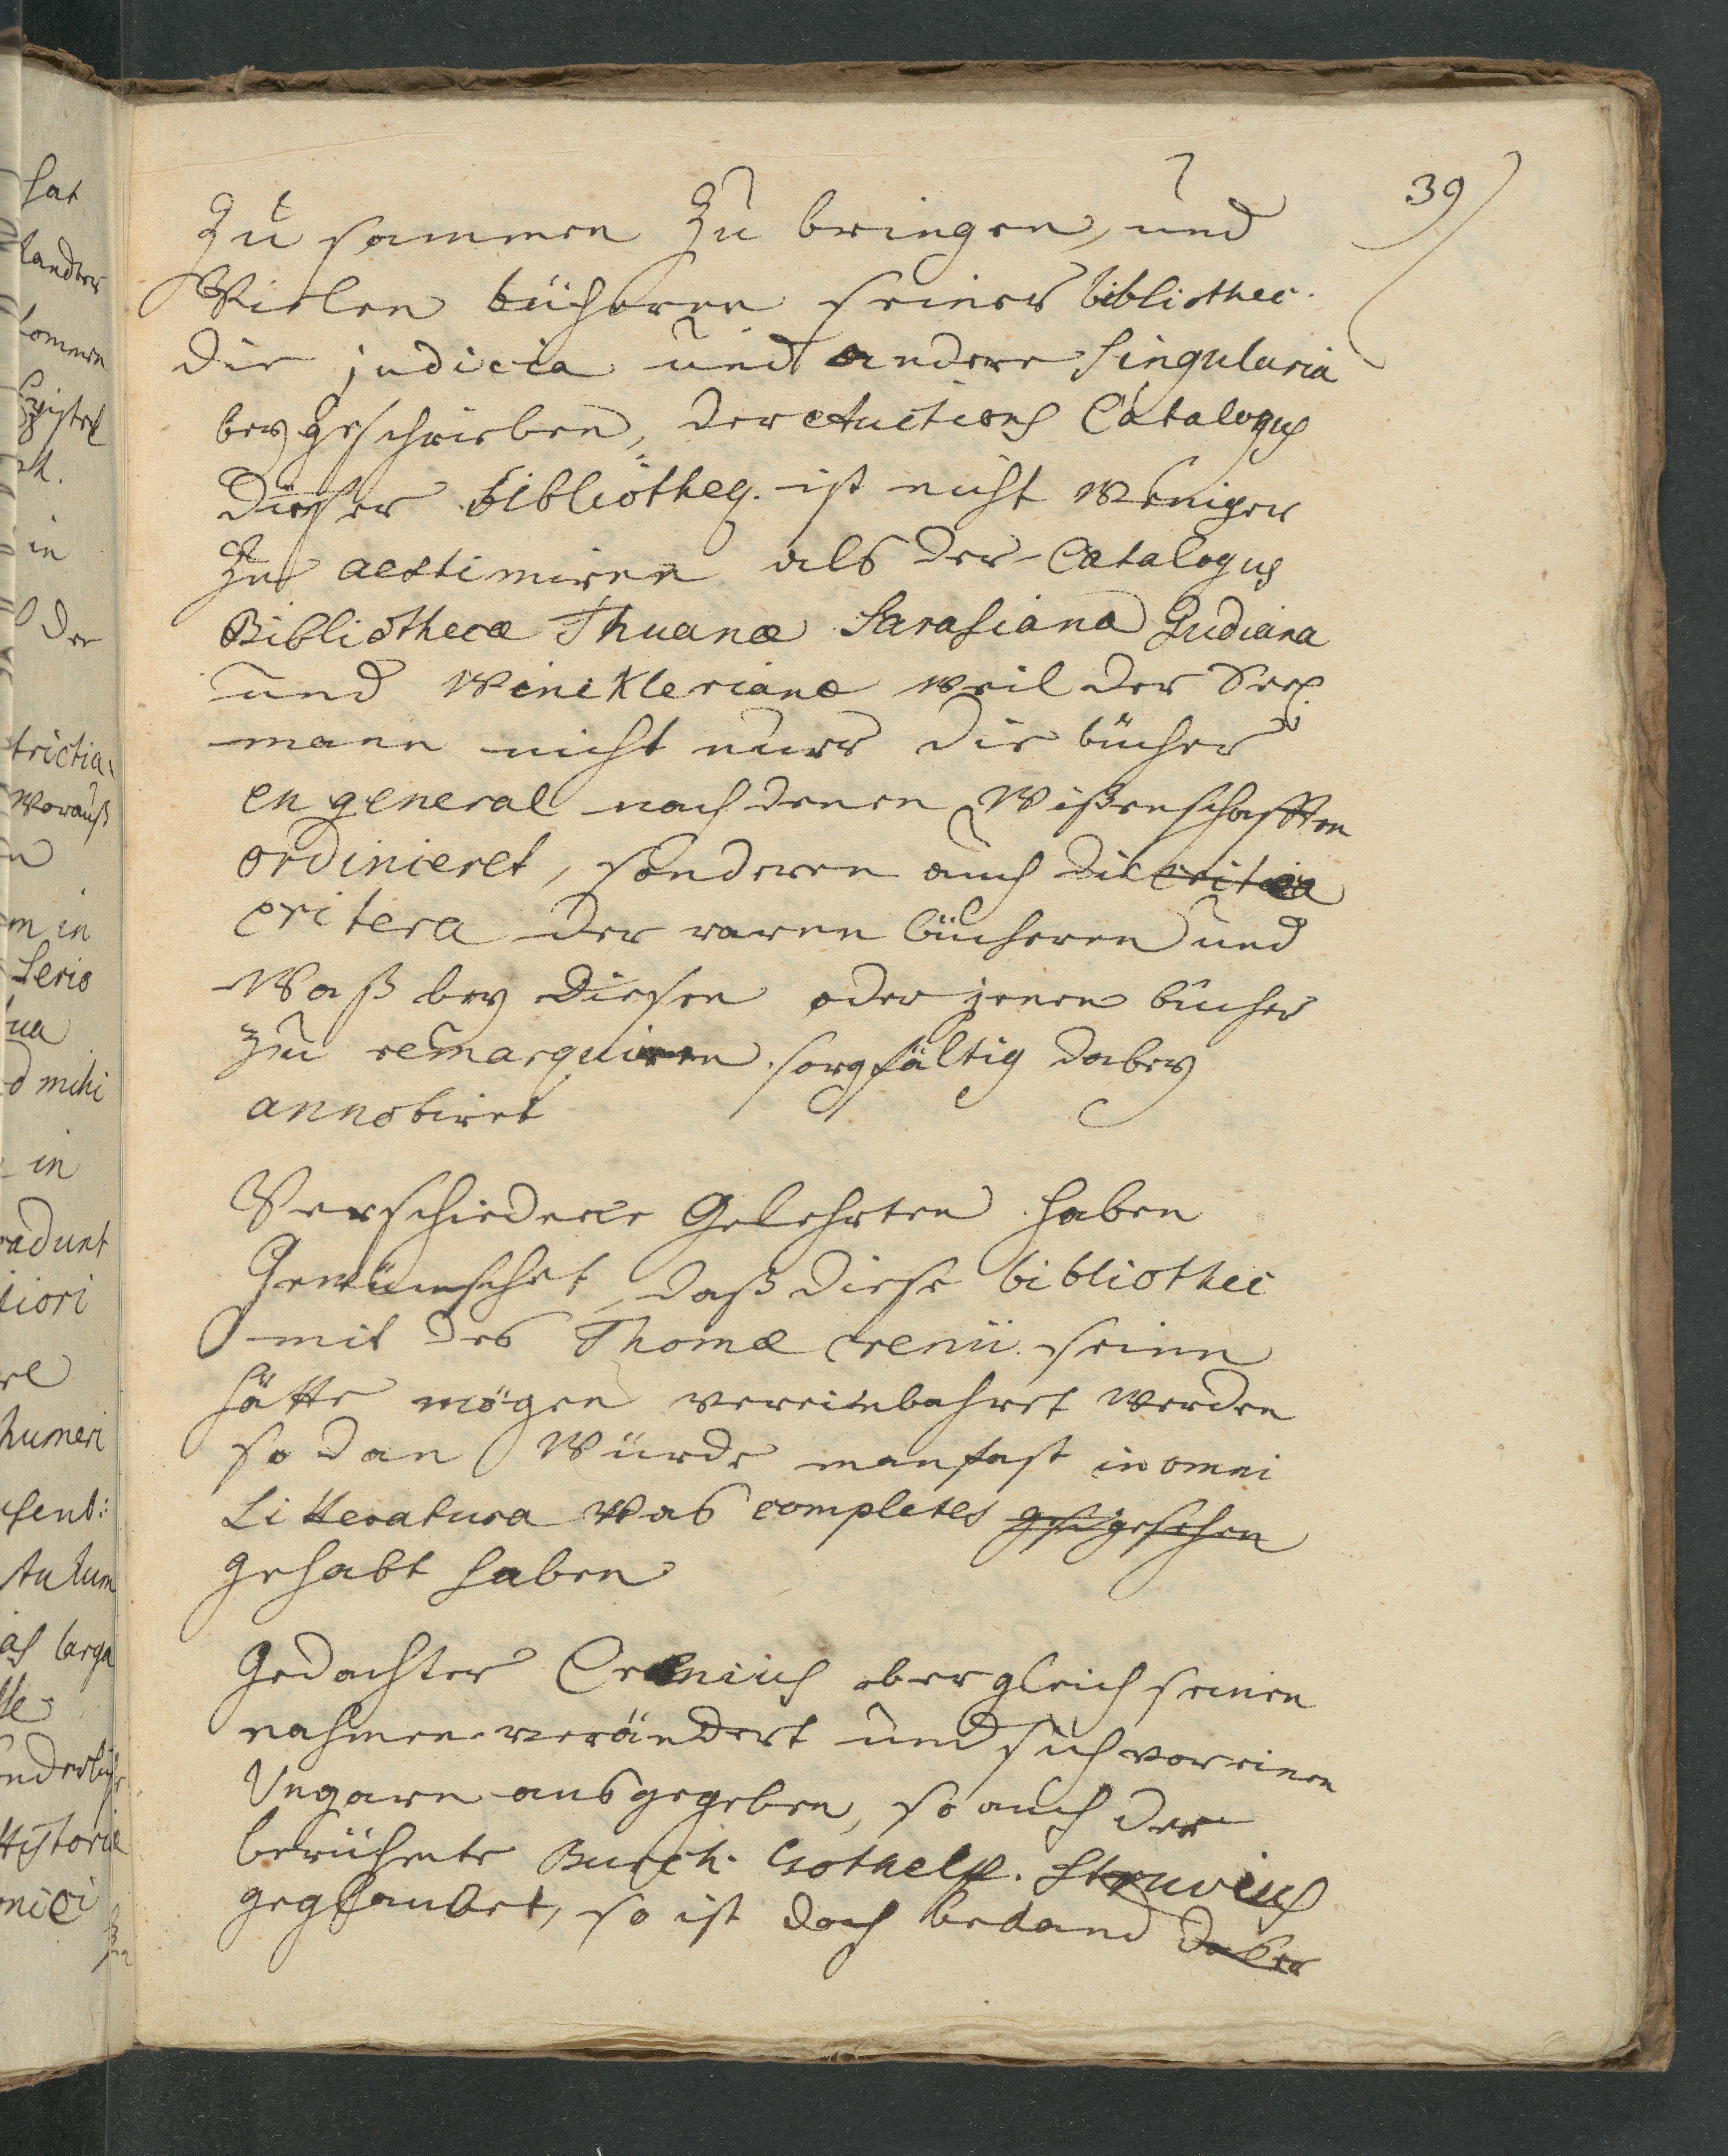 39
Zu sammen Zu bringen, und
Vielen bücheren seiner bibliothec.
die judicia und andere Singularia
bey geschrieben, der Auctions Catalogus
dieser Bibliotheq. ist nicht weniger
Zu aestimiren als der Catalogus
Bibliothecæ Thuanæ Sarasiana Gudiana
und Winckleriana weil der
mann nicht nurr die bücher
en general nach denen Wißenschafften
ordinieret, sonderen auch die critera
critera der raren bücheren und
Waß bey diesen oder jenen bücher
Zu remarquiren sorgfältig dabey
annotiret
Verschiedene Gelehrten haben
Gewünschet, daß diese bibliothec
mit des Thomæ Crenii seine
hätte mögen vereinbahret werden
so dan Würde man fast in omni
Litteratura was completes gesehen
gehabt haben
Gedachter Crenius ober gleich seinen
nahmen verändert und sich vor einen
Ungarn ausgegeben, so auch der
berühmte Burch. Gothelf. Struvius
geglaubet, so ist doch bekand daber
hat
in
der
worauß
m in
d mihi
in
humeri
larga